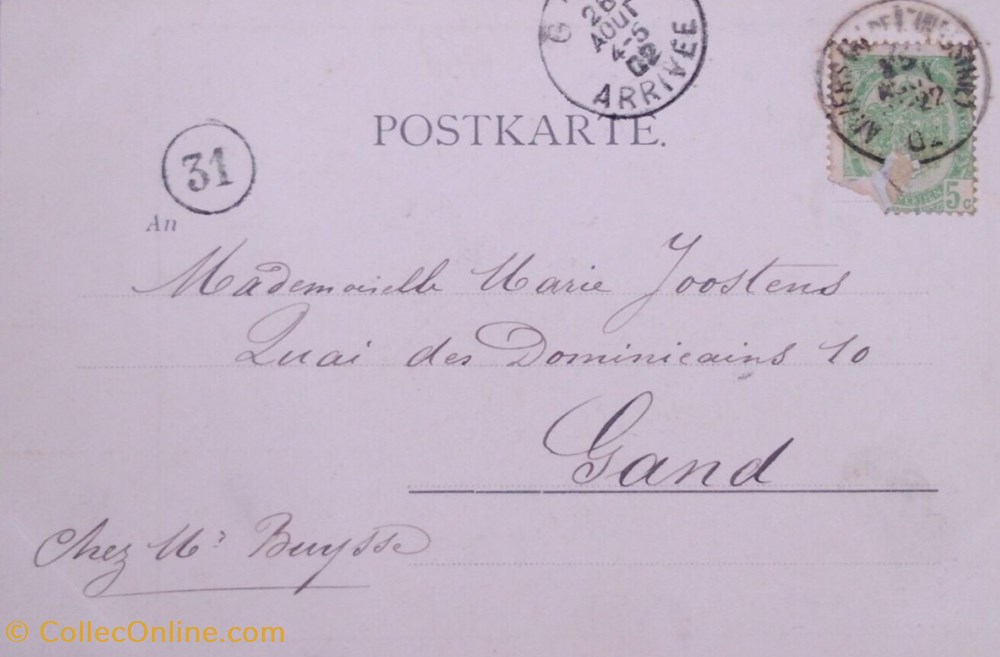 28
AOUT
4-5
02
ARRIVÉE
POSTKARTE.
31
5c
An
Mademoiselle Marie Joostens
Quai des Dominicains 10
Gand
Chez Mr Buysse
© CollecOnline.com